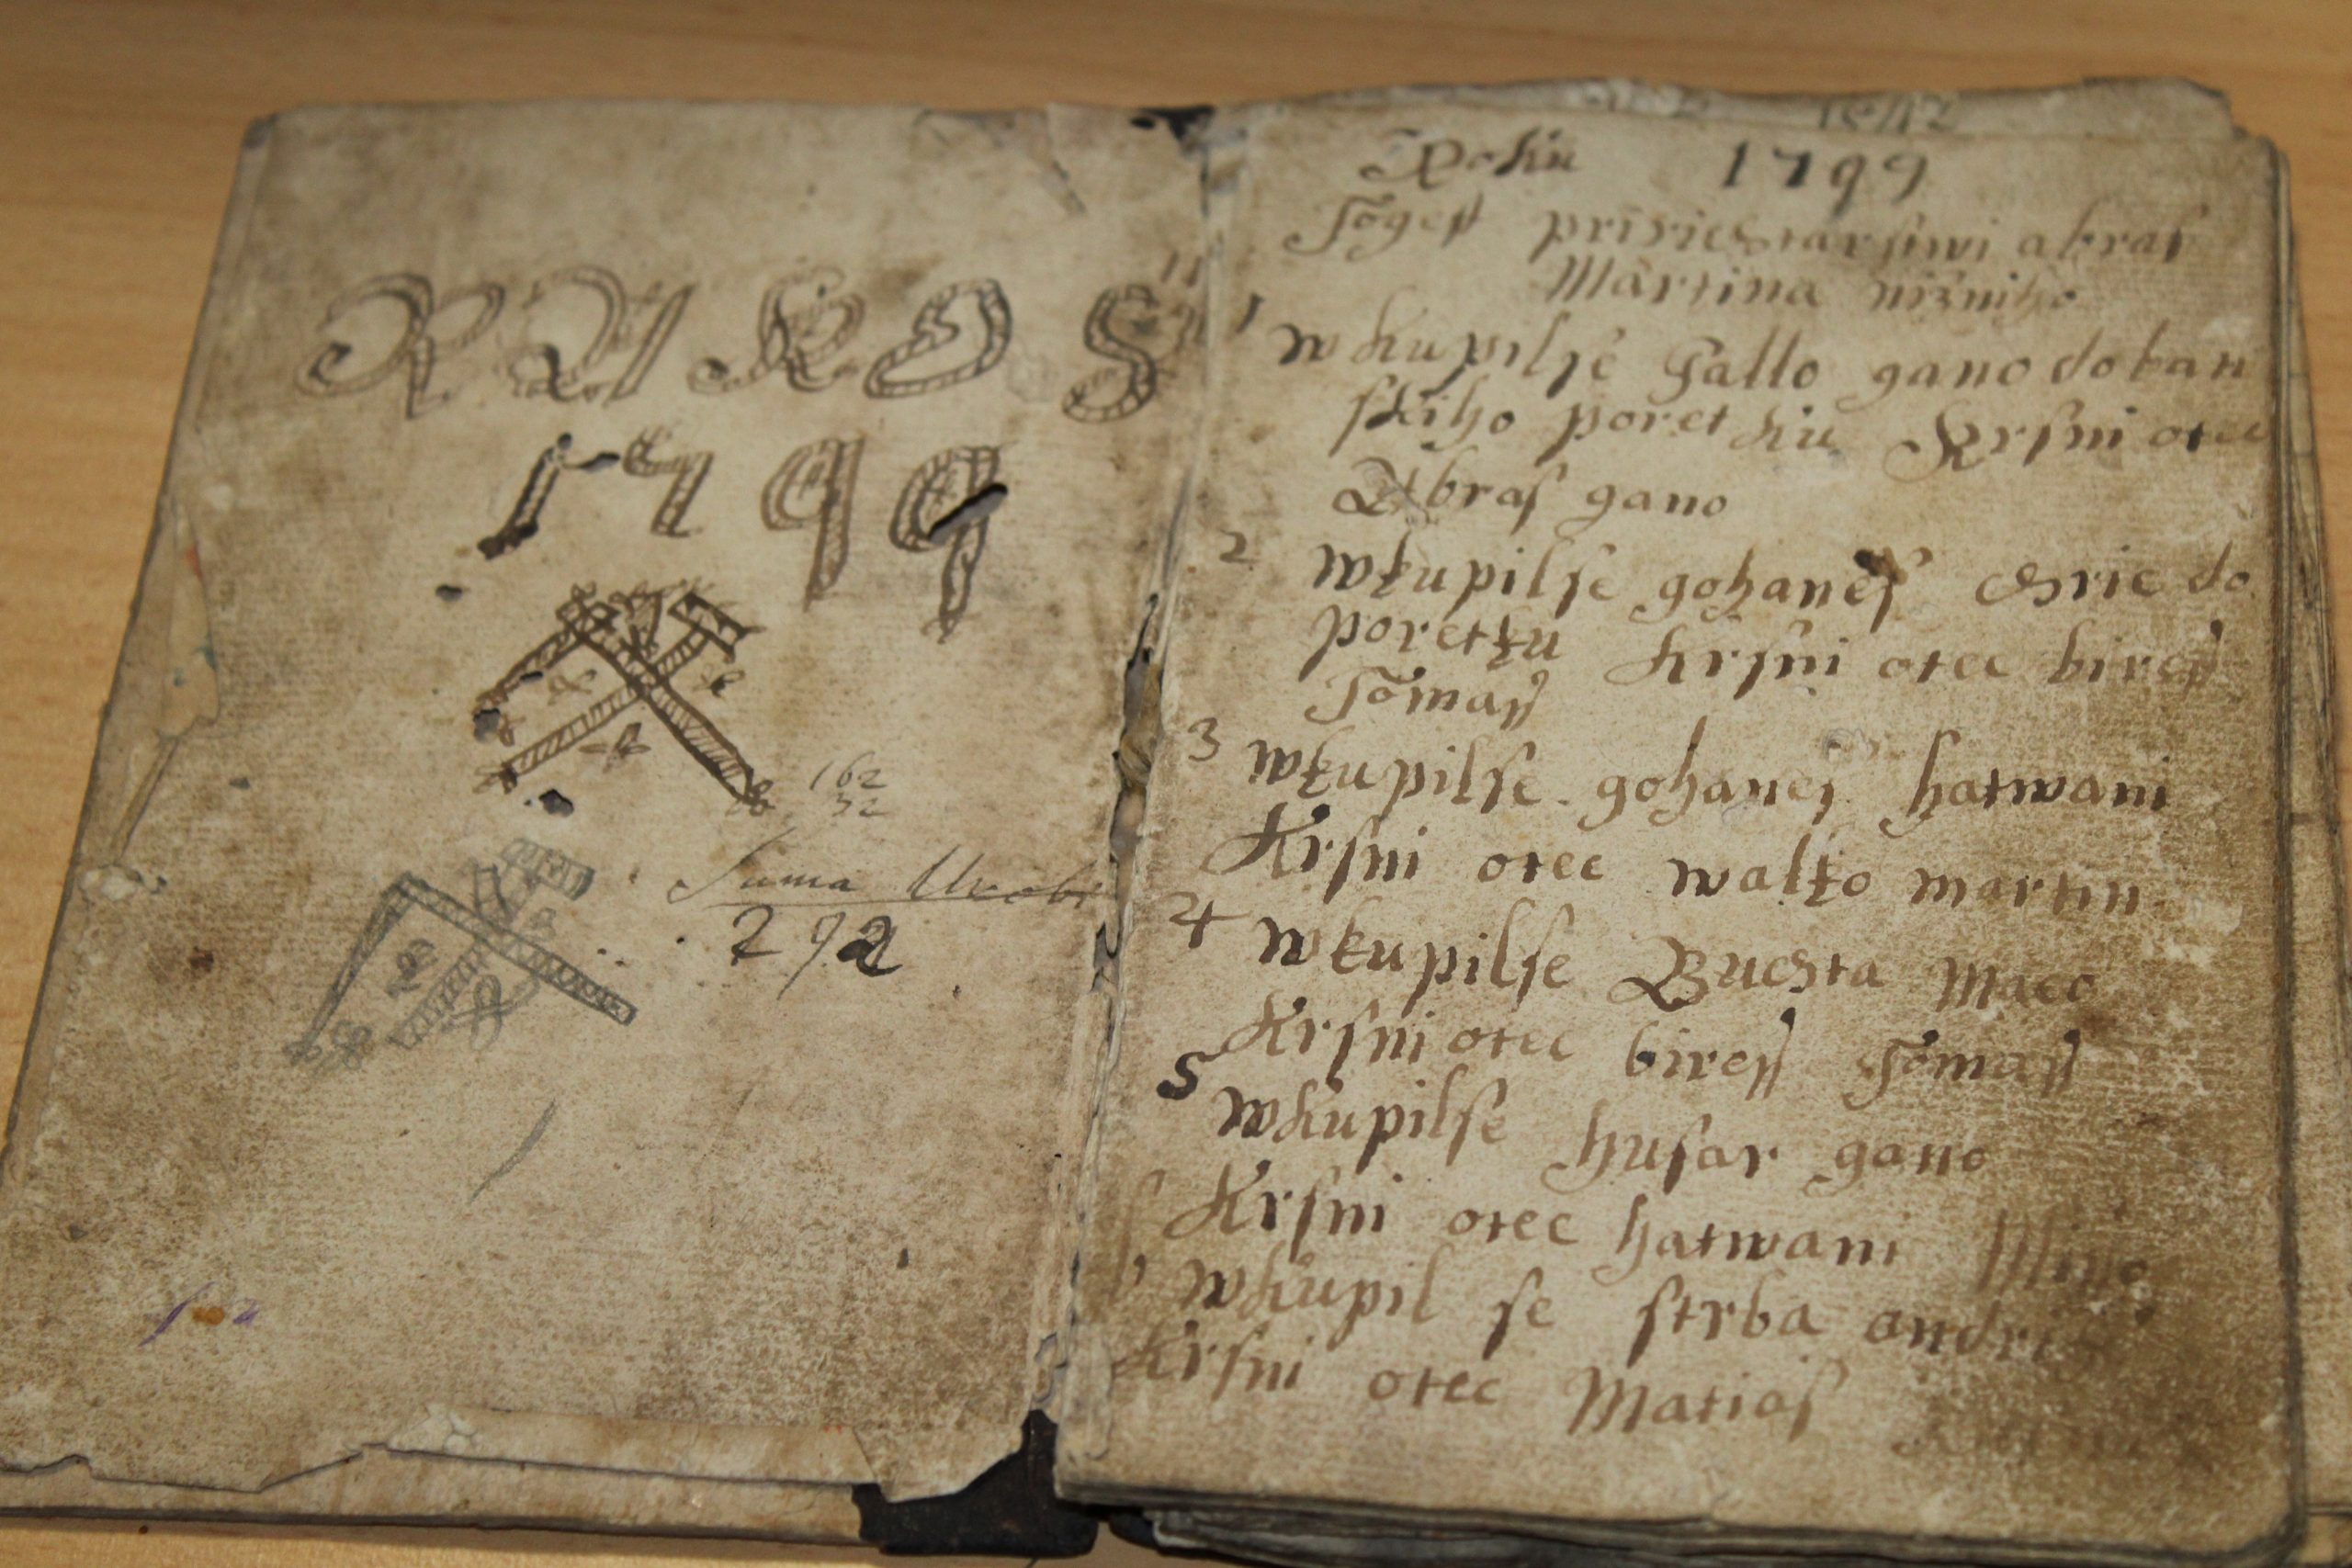 1799
162
32
Suma
292
Roku 1799
Togest pri abraſ
Martina nižniho
1 wkupilſe Gallo gano do ban
ſkiho poretku Krſni otec
Abraſ gano
2 wkupilſe gohaneſ do
poretku Krſni otec bireſſ
Tomaſſ
3 wkupilſe gohaneſ hatwani
Krſni otec walko martin
4 wkupilſe Macо
Krſni otec bireſſ Tomaſſ
5 wkupilſe huſar gano
Krſni otec hatwani
wkupil ſe ſtrba
Krſni otec Matiaſ